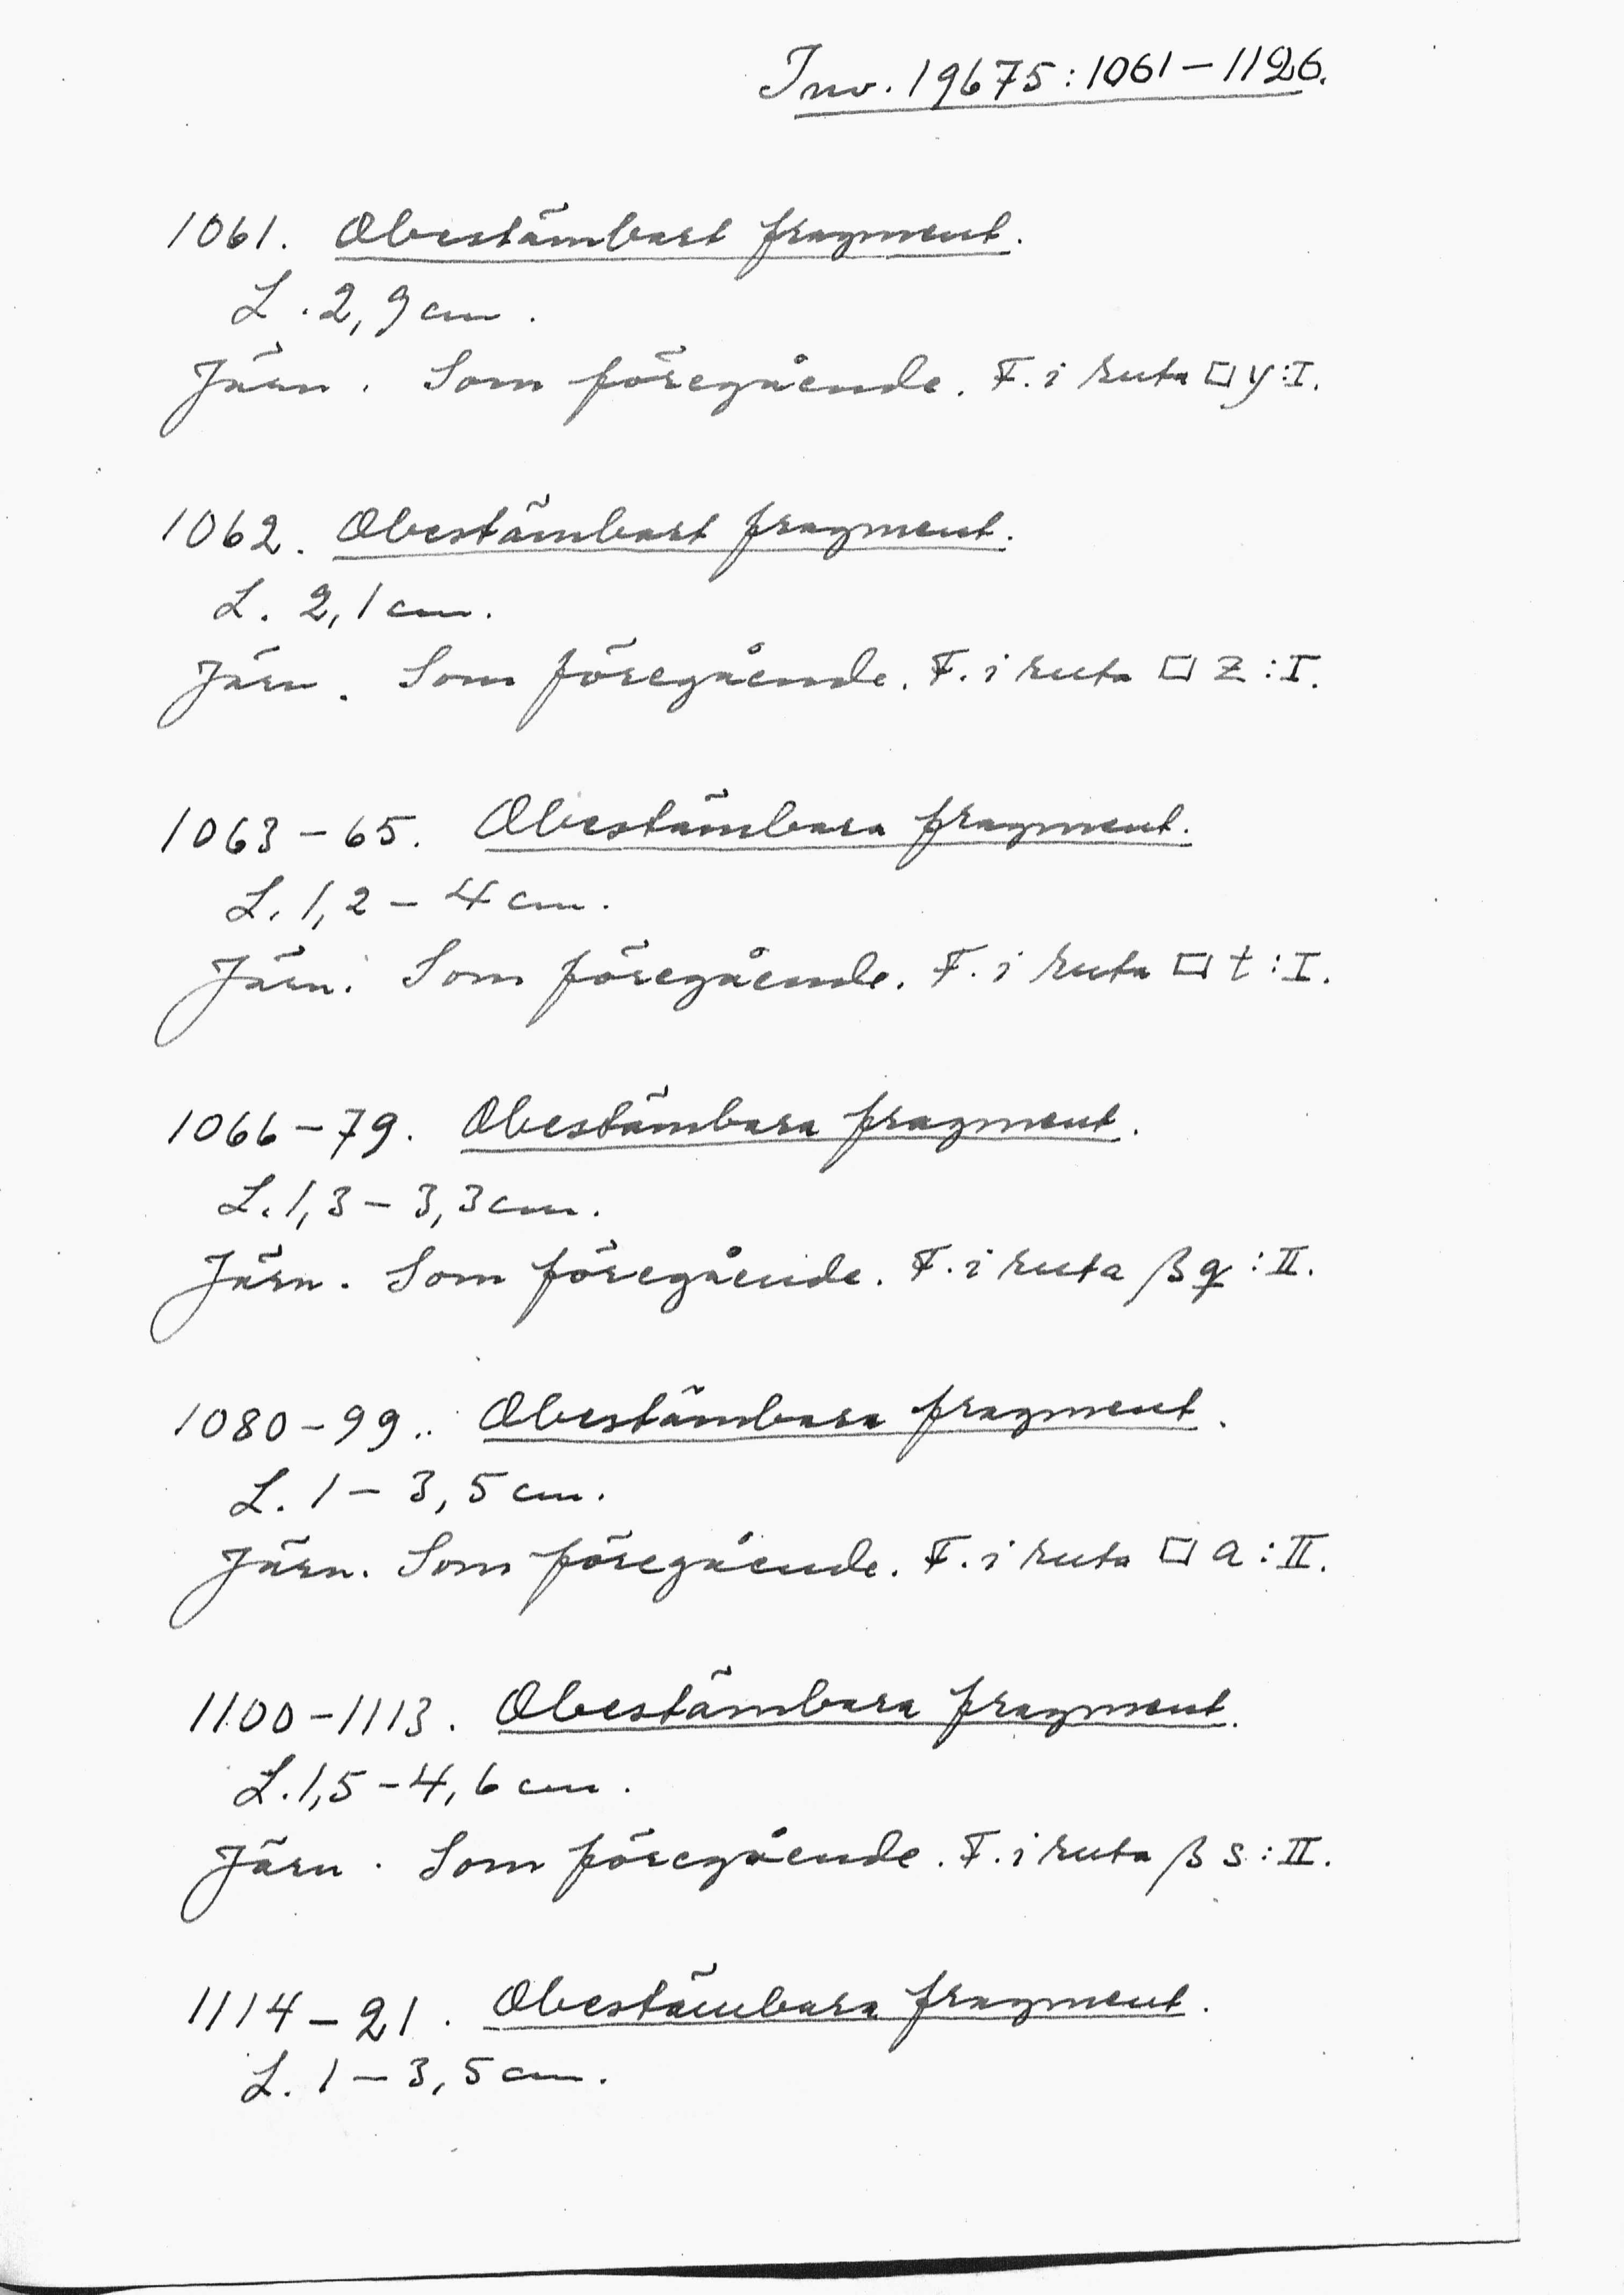 Inv. 19675:1061–1126.
1061. Obestämbart fragment.
L. 2,9 cm.
Järn. Som föregående. F. i ruta □ y:I.
1062. Obestämbart fragment.
L. 2,1 cm.
Järn. Som föregående. F. i ruta □ z:I.
1063–65. Obestämbara fragment.
L. 1,2 – 4 cm.
Järn. Som föregående. F. i ruta □ t:I.
1066–79. Obestämbara fragment.
L. 1,3 – 3,3 cm.
Järn. Som föregående. F. i ruta β q:II.
1080–99. Obestämbara fragment.
L. 1 – 3,5 cm.
Järn. Som föregående. F. i ruta □ a:II.
1100–1113. Obestämbara fragment.
L. 1,5 – 4,6 cm.
Järn. Som föregående. F. i ruta β s:II.
1114–21. Obestämbara fragment.
L. 1 – 3,5 cm.